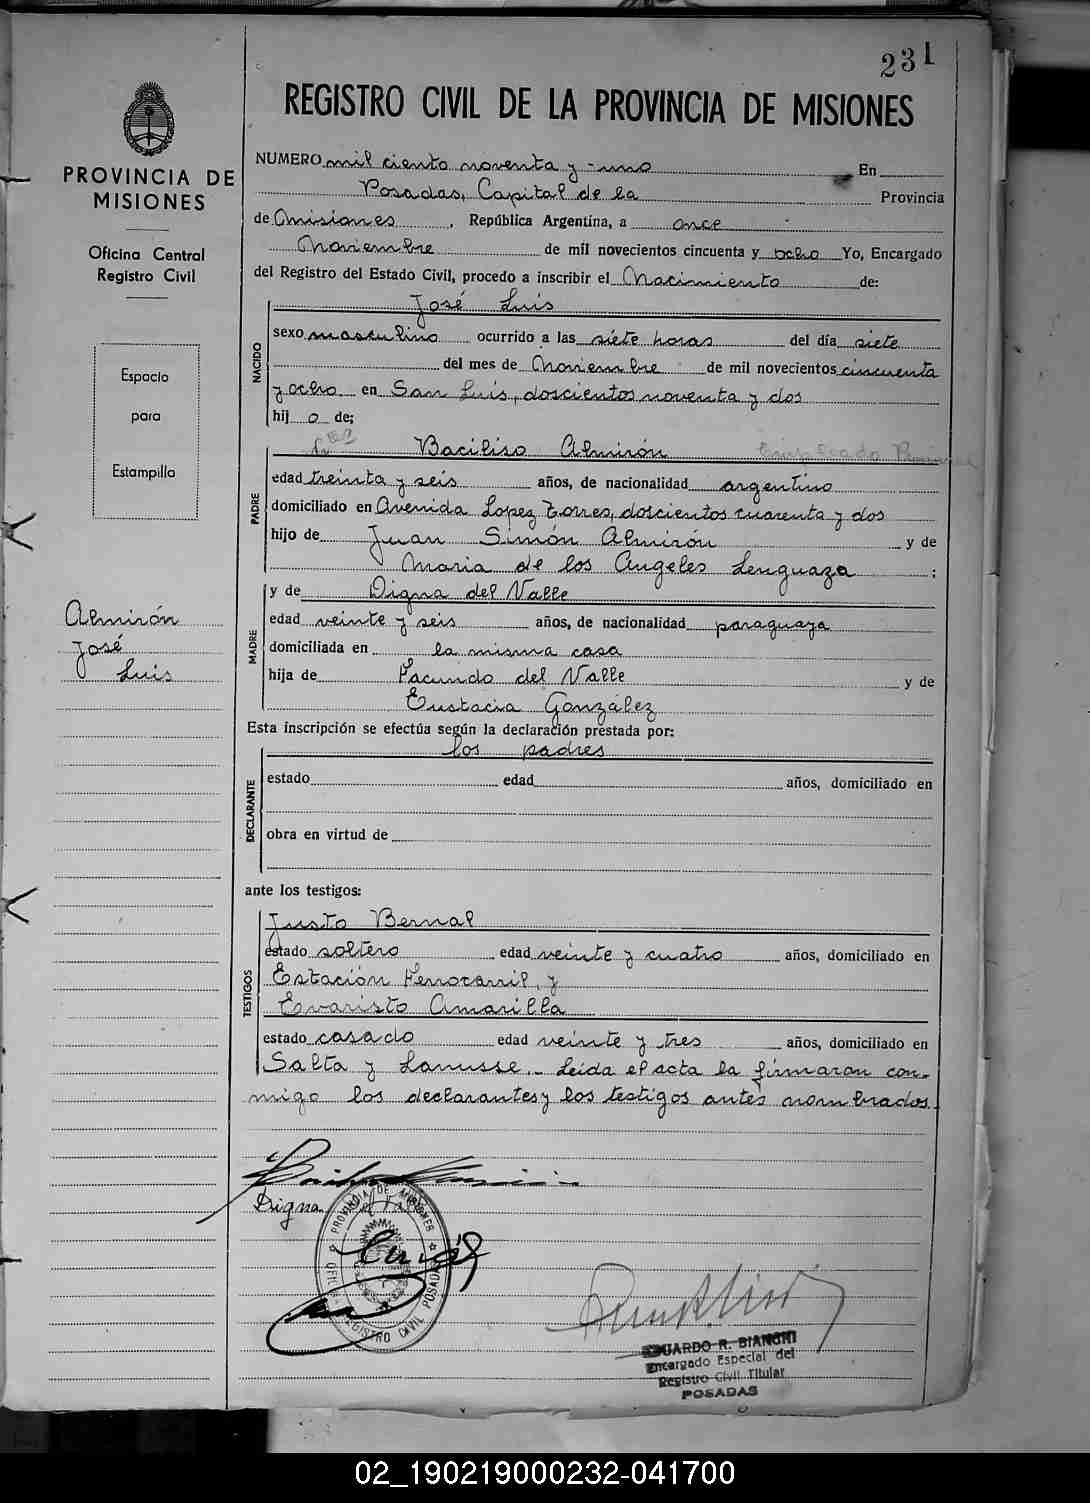 231
REGISTRO CIVIL DE LA PROVINCIA DE MISIONES
PROVINCIA DE
MISIONES
Oficina Central
Registro Civil
Espacio
para
Estampilla
Almirón
José
Luis
NUMERO mil ciento noventa y - uno En
Posadas, Capital de la Provincia
de Misiones, República Argentina, a once
Noviembre de mil novecientos cincuenta y ocho Yo, Encargado
del Registro del Estado Civil, procedo a inscribir el Nacimiento de:
NACIDO
José Luis
sexo masculino ocurrido a las siete horas del día siete
del mes de Noviembre de mil novecientos cincuenta
y ocho en San Luis, doscientos noventa y dos
hij o de;
PADRE
Baciliso Almirón Empleado
edad treinta y seis años, de nacionalidad argentino
domiciliado en Avenida Lopez Torres, doscientos cuarenta y dos
hijo de Juan Simón Almirón y de
Maria de los Angeles Lenguaza ;
MADRE
y de Digna del Valle
edad veinte y seis años, de nacionalidad paraguaya
domiciliada en la misma casa
hija de Facundo del Valle y de
Eustacia González
Esta inscripción se efectúa según la declaración prestada por:
los padres
DECLARANTE
estado edad años, domiciliado en
obra en virtud de
ante los testigos:
TESTIGOS
Justo Bernal
estado soltero edad veinte y cuatro años, domiciliado en
Estación Ferrocarril, y
Evaristo Amarilla
estado casado edad veinte y tres años, domiciliado en
Salta y Lanusse. - Leída el acta la firmaron con-
migo los declarantes y los testigos antes nombrados.
Digna
PROVINCIA DE MISIONES
REGISTRO CIVIL POSADAS
EDUARDO R. BIANCHI
Encargado Especial del
Registro Civil Titular
POSADAS
02_190219000232-041700